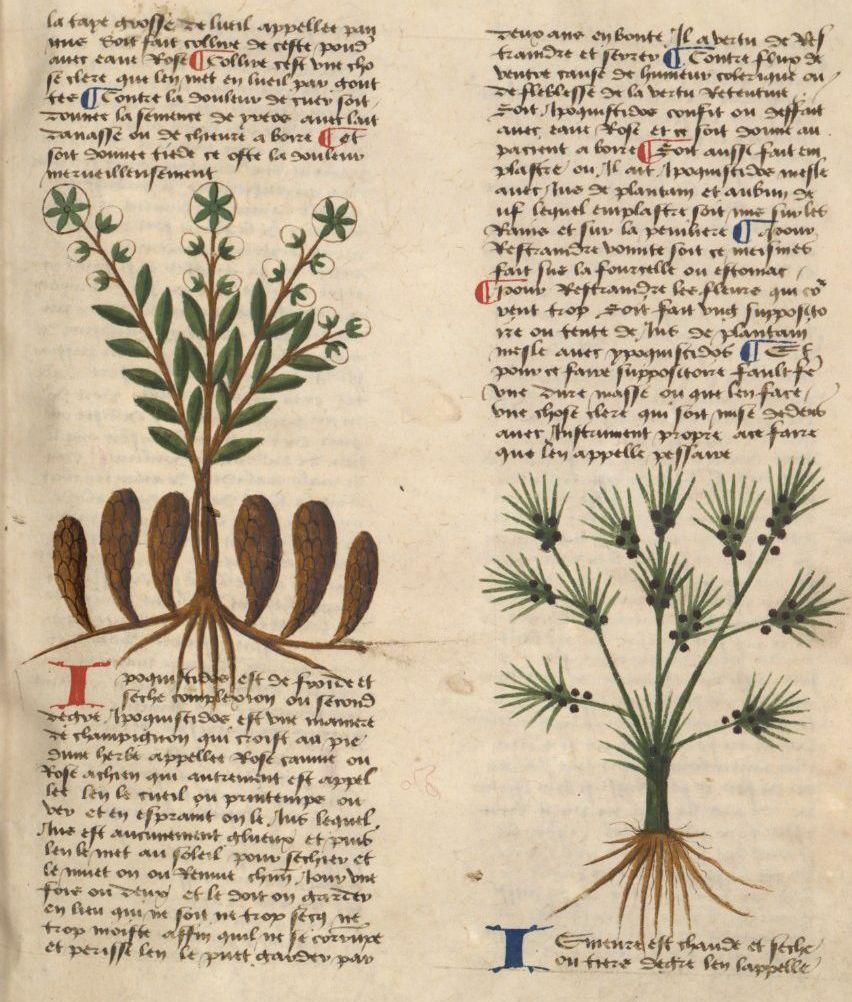 la tape grosse de lueil appellee pan
nus Soit fait collire de ceste poud'
avec eaue Rose ¶ Collire cest une cho
se clere que len met en lueil par gout
tes ¶ Contre la douleur de cuer soit
donnee la semence de avec lait
danasse ou de chieure a boire ¶ et
soit donnee tiede ce oste la douleur
merveilleusement
Ipoquistidos est de froide et
seche complexion ou second
degre Ipoquistidos est une maniere
de champignon qui croist au pie
dune herbe appellee Rose canine ou
Rose achien qui autrement est appel
lee len le cueil ou printemps ou
ver et en espraint on le Jus lequel
Jus est aucunement glueux et puis
len le met au soleil pour sechier et
le muet on ou Remue chun Jour une
fois ou deux et le doit on garder
en lieu qui ne soit ne trop secq ne
trop moiste affin quil ne se corrumpe
et perisse len le puet garder par
deux ans en bonte Il a vertu de Res
traindre et serrer ¶ Contre flux de
ventre cause de humeur colerique ou
de fleblesse de la vertu Retentive
Soit Ipoquistidos confit ou deffait
avec eaue Rose et ce soit donne au
pacient a boire ¶ Soit aussi fait em
plastre ou Il ait Ipoquistidos mesle
avec Jus de plantain et aubun de
uf lequel emplastre soit mis sur les
Rains et sur la peniliere ¶ Pour
Restraindre vomite soit ce meismes
fait sus la fourcelle ou estomac
¶ Pour Restraindre les fleurs qui co
rent trop Soit fait ung supposito
ire ou tente de Jus de plantain
mesle avec ypoquistidos ¶ Et
pour ce faire suppositoire fault fe
une dure masse ou que len face
une chose clere qui soit mise dedens
avec Instrument propre ace faire
que len appelle pessaire
Geneure est chaude et seche
ou tiers degre len lappelle